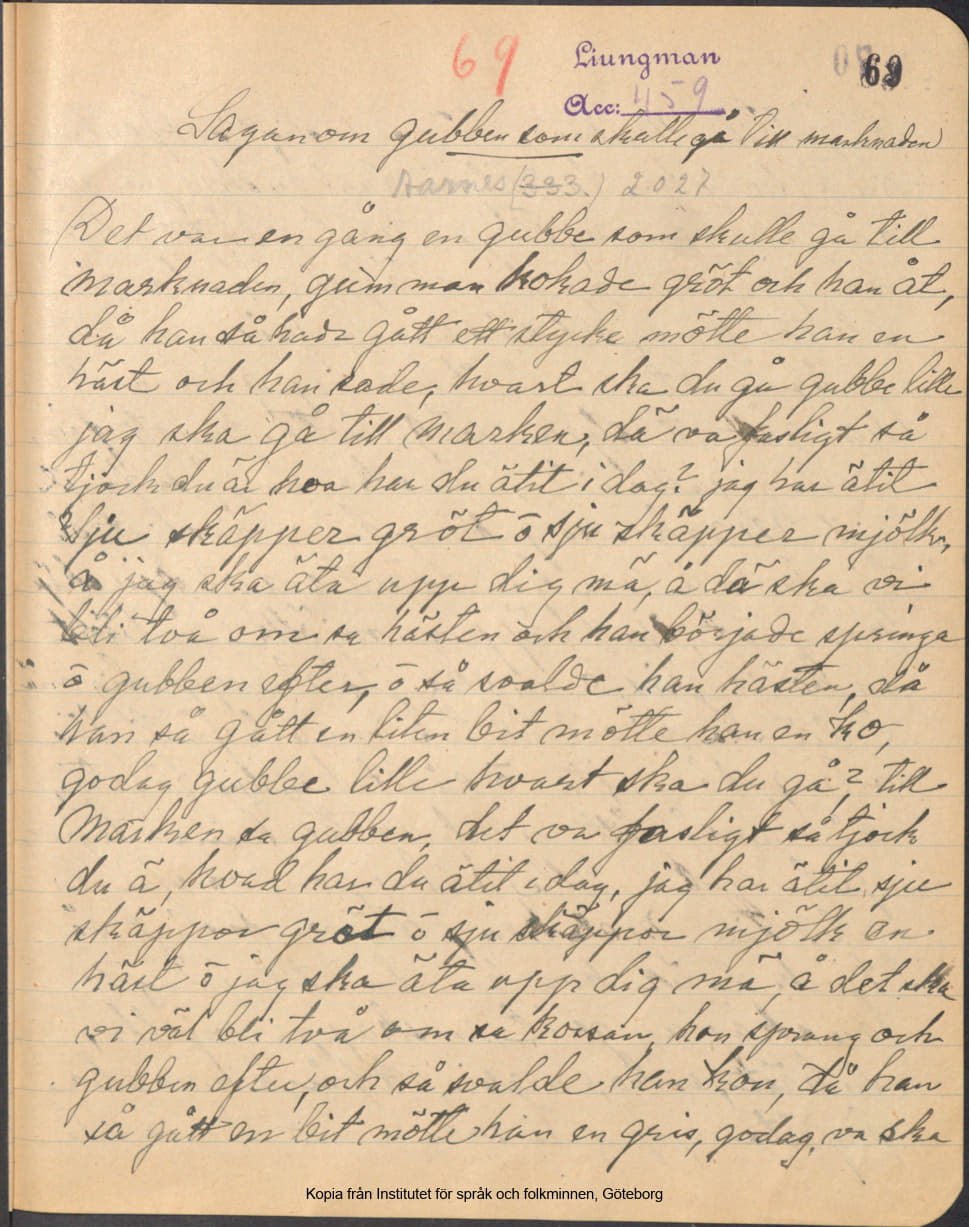 69
Liungman
69
Acc: 459
Sagan om gubben som skulle gå till marknaden
Aarnes (333.) 2027
Det var en gång en gubbe som skulle gå till
marknaden, gumman kokade gröt och han åt,
då han så hade gått ett stycke mötte han en
häst och han sade, hvart ska du gå gubbe lille
jag ska gå till Marken, dä va fasligt så
tjock du är hva har du ätit i dag? jag har ätit
sju skäpper gröt ö sju skäpper mjölk,
å jag ska äta upp dig mä, å dä ska vi
bli två om sa hästen och han började springa
ö gubben efter, ö så svalde han hästen, då
han så gått en liten bit mötte han en ko,
godag gubbe lille hvart ska du gå? till
Marken sa gubben, det va fasligt så tjock
du ä, hvad har du ätit i dag, jag har ätit sju
skäppor gröt ö sju skäppor mjölk en
häst ö jag ska äta upp dig mä, å det ska
vi väl bli två om sa kossan, hon sprang och
gubben efter, och så svalde han kon, då han
så gått en bit mötte han en gris, godag, va ska
Kopia från Institutet för språk och folkminnen, Göteborg